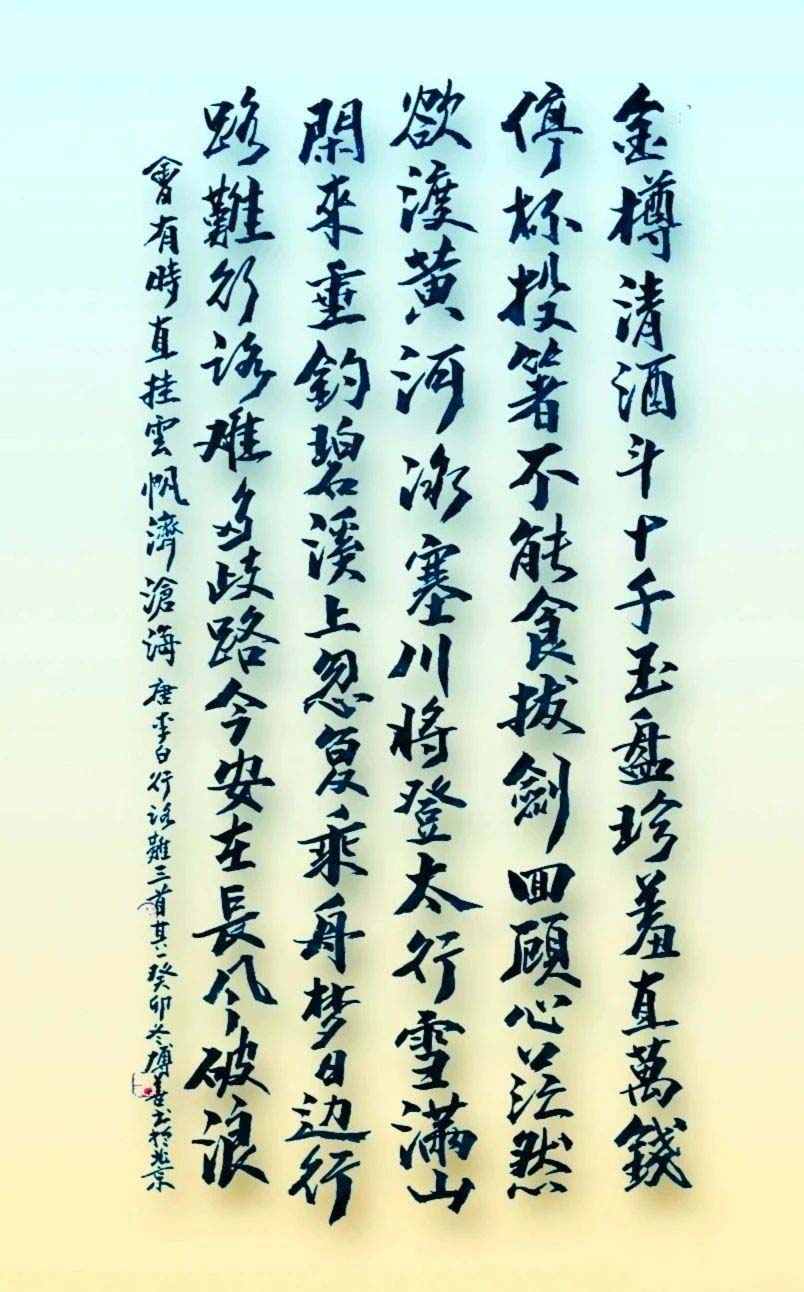 金樽清酒斗十千玉盘珍羞直萬錢
停杯投箸不能食拔劍四顧心茫然
欲渡黄河冰塞川將登太行雪满山
閑來垂釣碧溪上忽复乘舟梦日边行
路難行路难多歧路今安在長风破浪
會有時直挂雲帆濟滄海 唐李白行路難三首其一癸卯冬博善书於北京